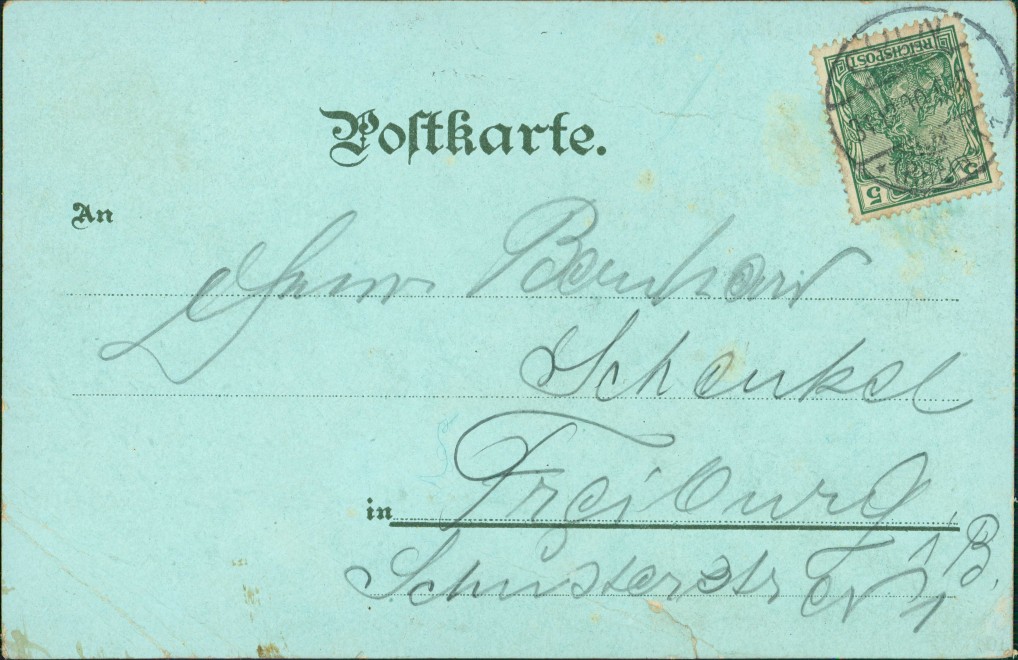 REICHSPOST
5 5
Postkarte.
An
Herrn Bernhard
Schenkel
in Freiburg
i B.
Schusterstr